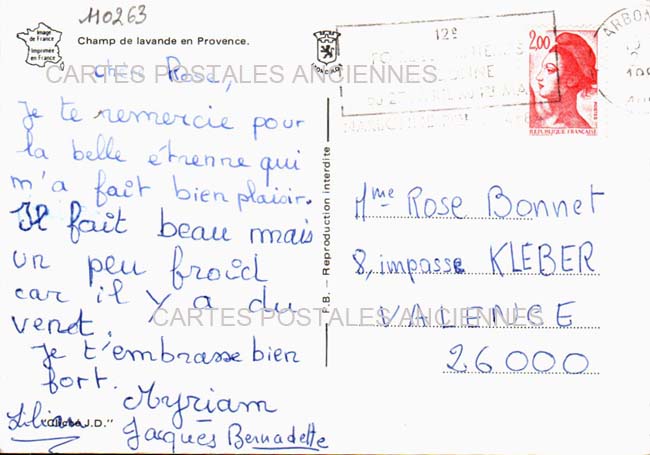 110263
Image
de France
Imprimée
en France
Champ de lavande en Provence.
CARTES POSTALES ANCIENNES
chère Rose,
Je te remercie pour
la belle étrenne qui
m'a fait bien plaisir.
Il fait beau mais
un peu froid
car il y a du
venet.
Je t'embrasse bien
fort.
Myriam
Jacques Bernadette
J.D."
F.B. - Reproduction interdite
12e
2,00
REPUBLIQUE FRANÇAISE
Mme Rose Bonnet
8, impasse KLEBER
VALENCE
26000
CARTES POSTALES ANCIENNES